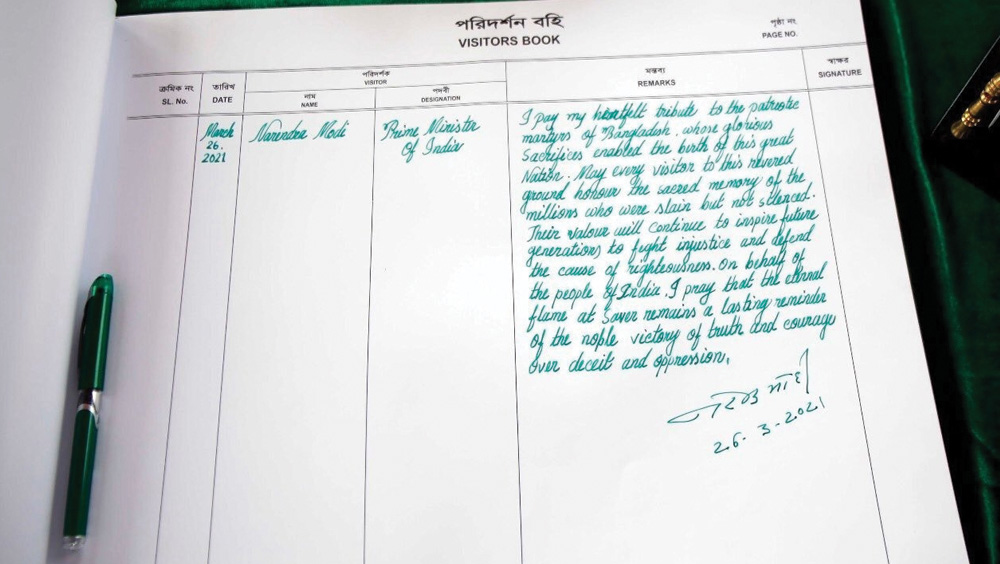 পরিদর্শন বহি
VISITORS BOOK
পৃষ্ঠা নং
PAGE NO.
ক্রমিক নং
SL. No.
তারিখ
DATE
পরিদর্শক
VISITOR
নাম
NAME
পদবী
DESIGNATION
মন্তব্য
REMARKS
স্বাক্ষর
SIGNATURE
March
26.
2021
Narendra Modi
Prime Minister
Of India
I pay my heartfelt tribute to the patriotic
martyrs of Bangladesh, whose glorious
Sacrifices enabled the birth of this great
Nation. May every visitor to this revered
ground honour the sacred memory of the
millions who were slain but not silenced.
Their valour will continue to inspire future
generations to fight injustice and defend
the cause of righteousness. On behalf of
the people of India, I pray that the eternal
flame at Saver remains a lasting reminder
of the nople victory of truth and courage
over deceit and oppression.
26-3-2021